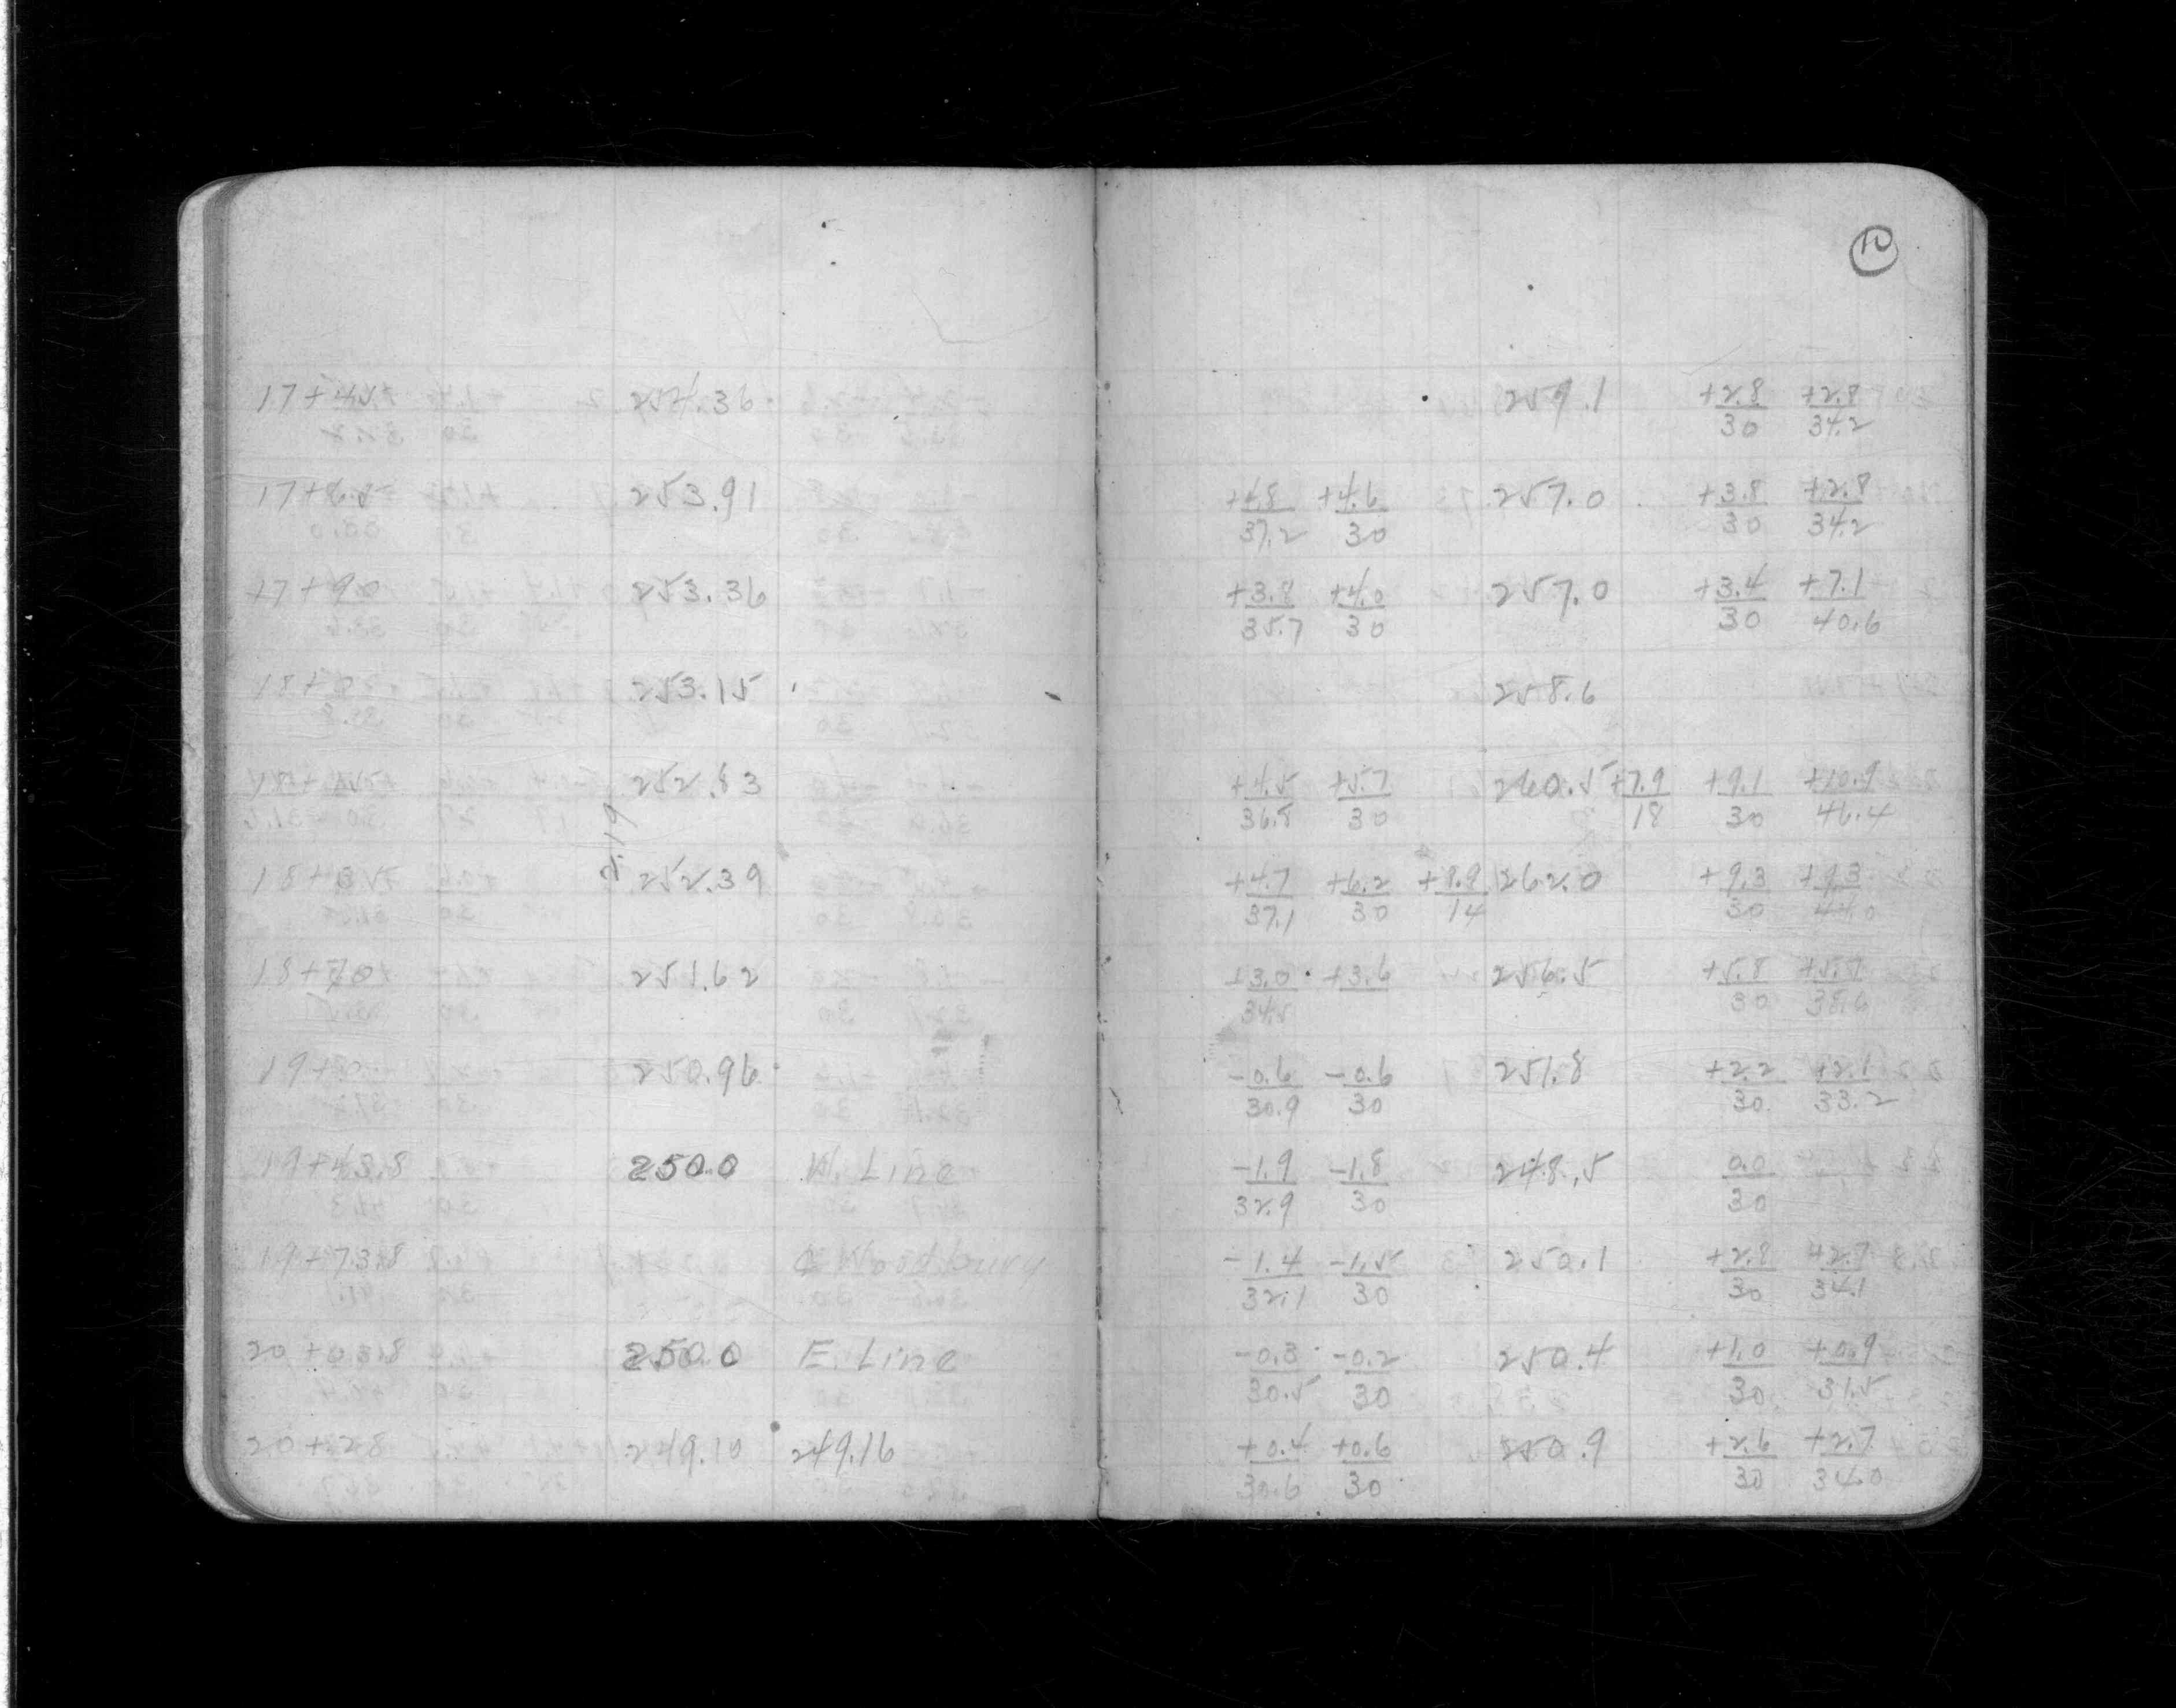 10
17+45 254.36 259.1 +2.8/30 +2.8/34.2
253.91 +4.8/37.2 +4.6/30 257.0 +3.8/30 +2.8/34.2
17+90 253.36 +3.8/35.7 +4.0/30 257.0 +3.4/30 +7.1/40.6
253.15 258.6
252.83 +4.5/36.8 +5.7/30 260.5 +7.9/18 +9.1/30 +10.9/46.4
2.19
252.39 +4.7/37.1 +6.2/30 +8.9/14 262.0 +9.3/30 +9.3/44.0
18+70 251.62 +3.0/34.5 +3.6 256.5 +5.8/30 +5.7/38.6
19+0 250.96 -0.6/30.9 -0.6/30 251.8 +2.2/30 +2.1/33.2
19+43.8 250.0 W. Line -1.9/32.9 -1.8/30 248.5 0.0/30
19+73.8 ℄ Woodbury -1.4/32.1 -1.5/30 250.1 +2.8/30 +2.7/34.1
20+03.8 250.0 E. Line -0.3/30.5 -0.2/30 250.4 +1.0/30 +0.9/31.5
20+28 249.10 249.16 +0.4/30.6 +0.6/30 250.9 +2.6/30 +2.7/34.0